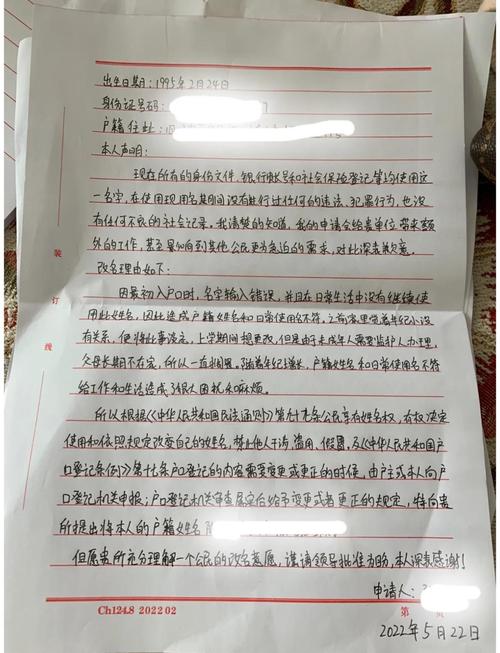 出生日期：1995年2月24日
身份证号码：
户籍住址：
本人声明：
现在所有的身份文件，银行账号和社会保险登记等均使用这
一名字，在使用现用名其间没有进行过任何的违法、犯罪行为，也没
有任何不良的社会记录。我清楚的知道，我的申请会给贵单位带来额
外的工作，甚至影响到其他公民更为急迫的需求，对此深表歉意。
改名理由如下：
因最初入户口时，名字输入错误，并且在日常生活中没有继续使
用此姓名，因此造成户籍姓名和日常使用名不符，之前家里觉着年纪小没
有关系，便将此事淡忘，上学期间想更改，但是由于未成年人需要监护人办理，
父母长期不在家，所以一直搁置。随着年纪增长，户籍姓名和日常使用名不符
给工作和生活造成了很大困扰和麻烦。
所以根据《中华人民共和国民法通则》第九十九条公民享有姓名权，有权决定
使用和依照规定改变自己的姓名，禁止他人干涉，盗用、假冒，及《中华人民共和国户
口登记条例》第十七条户口登记的内容需要变更或更正的时候，由户主或本人向户
口登记机关申报；户口登记机关审查属实后给予变更或者更正的规定，特向贵
所提出将本人的户籍姓名
但愿贵所充分理解一个公民的改名意愿，谨请领导批准为盼，本人深表感谢！
申请人：
装
订
线
Ch124.8 2022 02
第 页
2022年5月22日